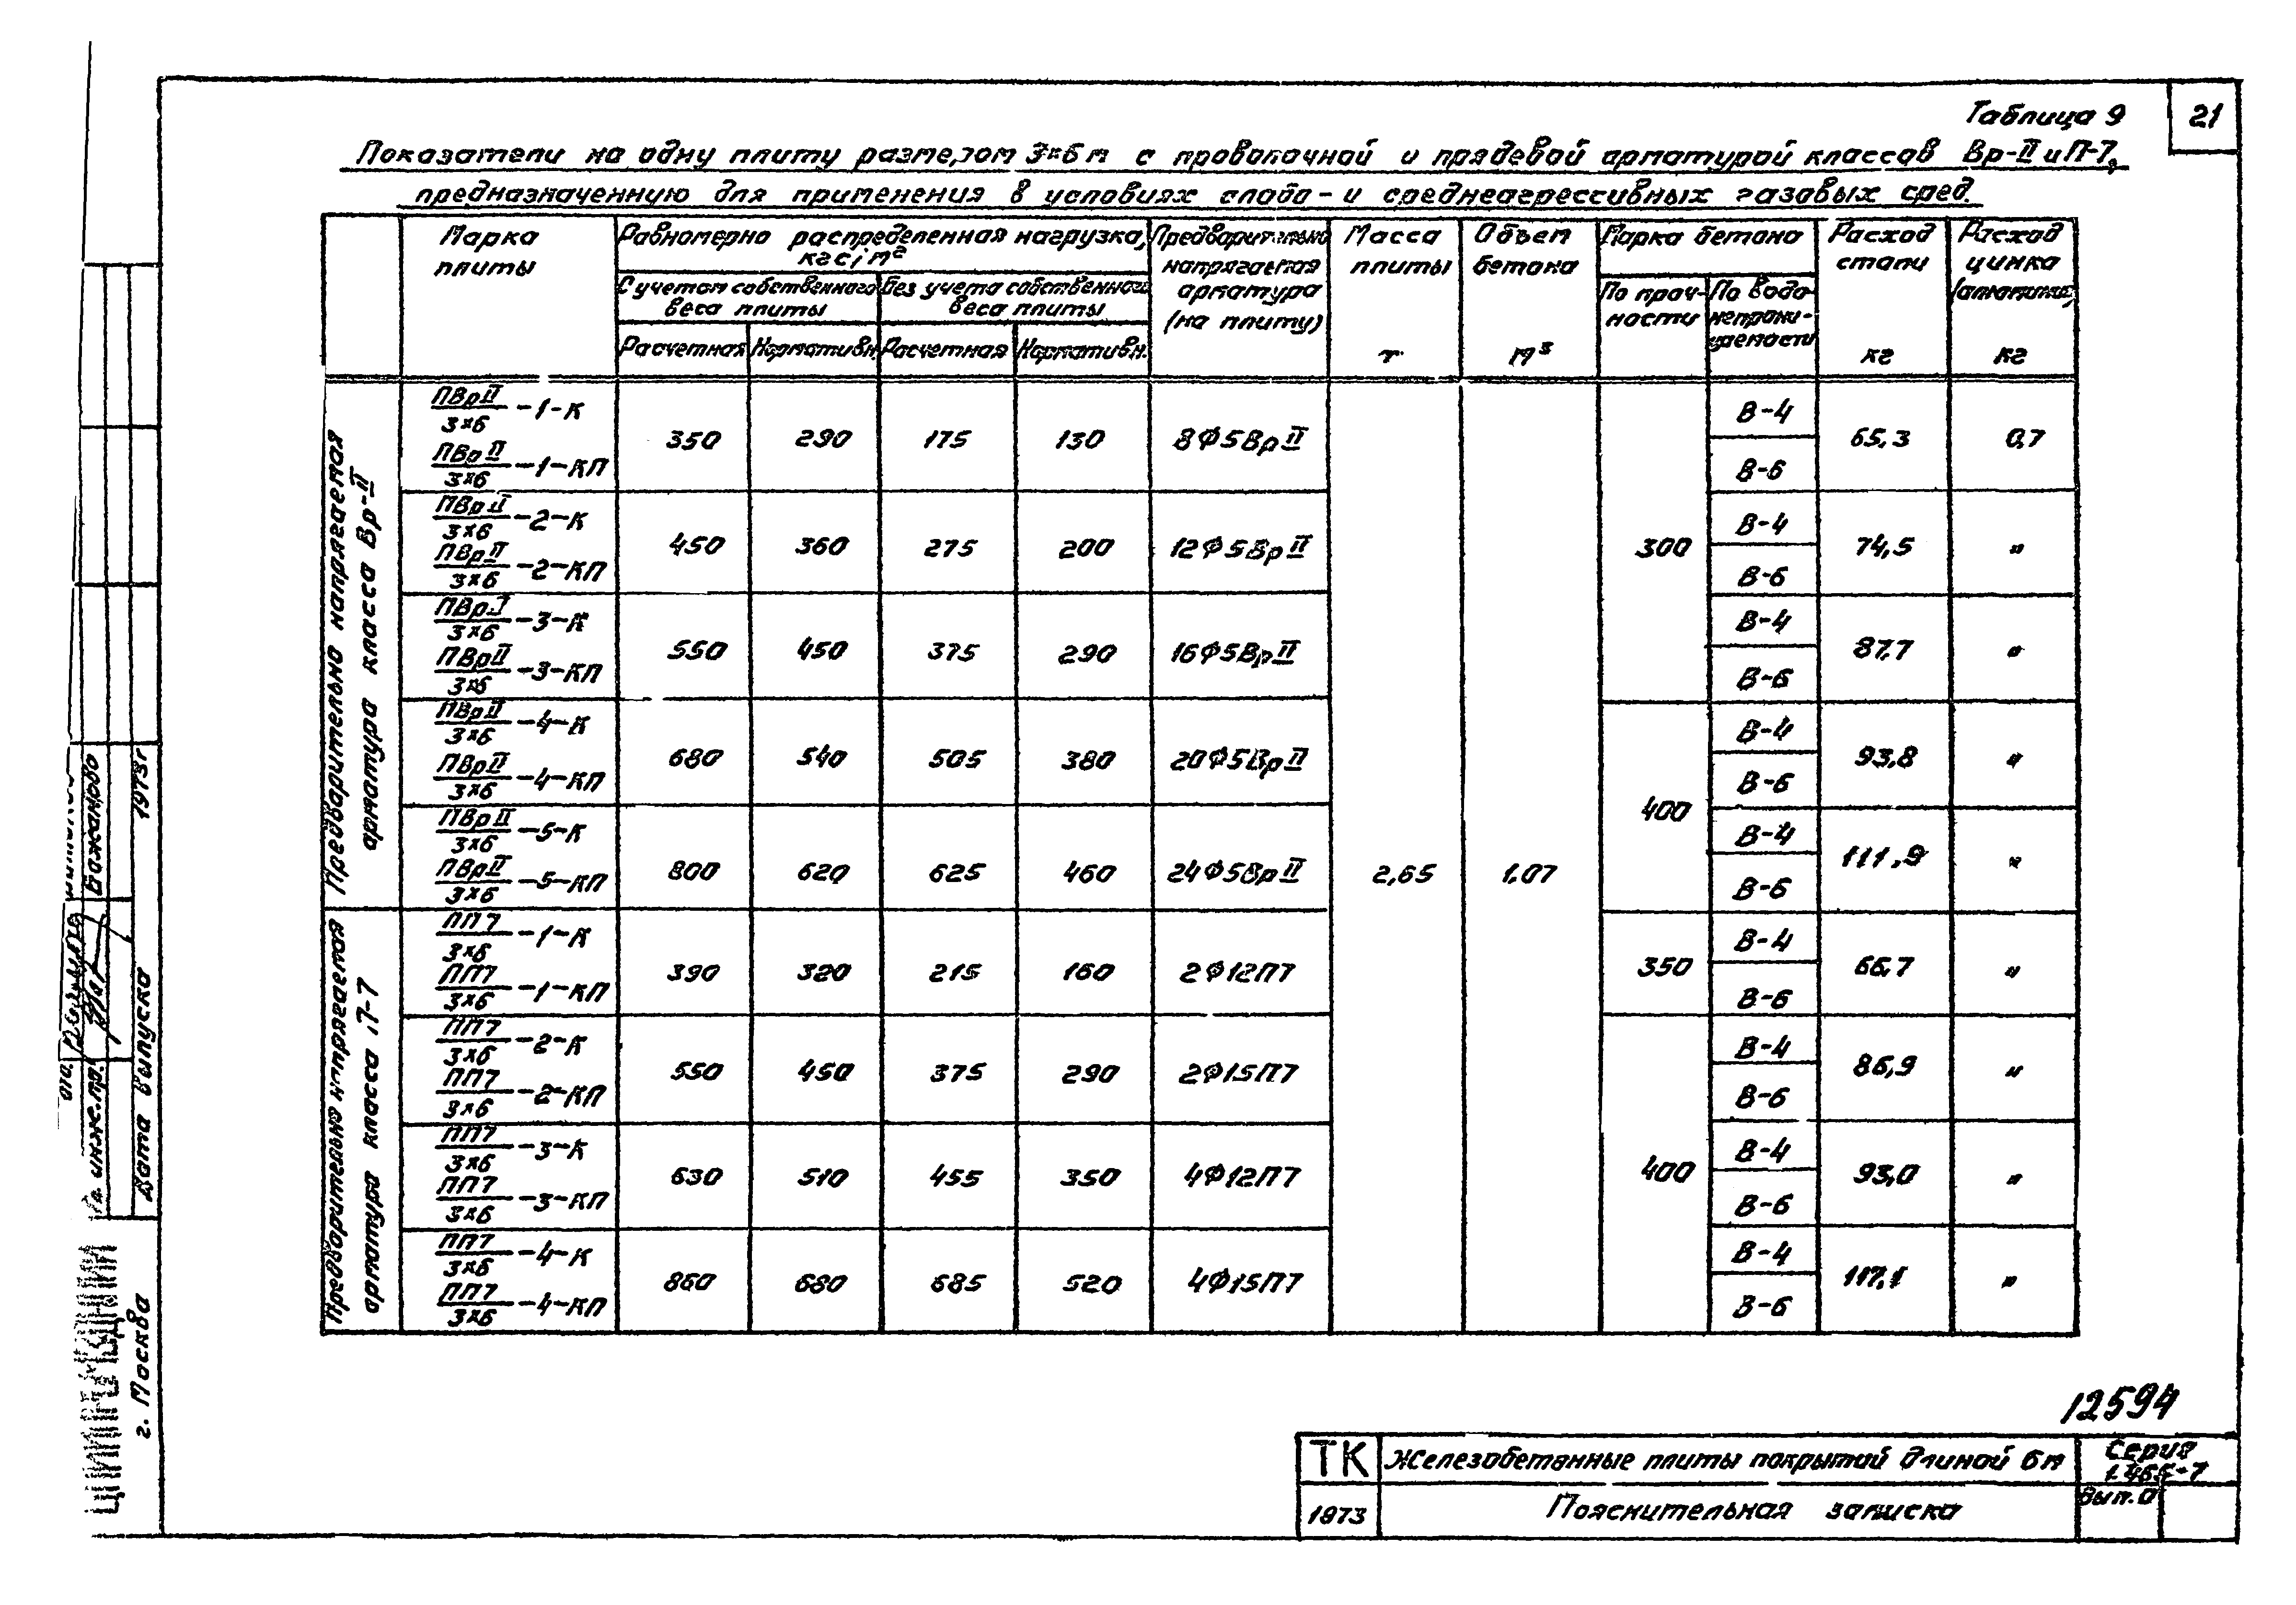 Таблица 9
21
Показатели на одну плиту размером 3×6 м с проволочной и прядевой арматурой классов Вр-II и П-7,
предназначенную для применения в условиях слабо- и среднеагрессивных газовых сред.
Марка плиты
Равномерно распределенная нагрузка, кгс/м²
С учетом собственного веса плиты
Без учета собственного веса плиты
Расчетная
Нормативн.
Расчетная
Нормативн.
Предварительно напрягаемая арматура (на плиту)
Масса плиты т
Объем бетона м³
Марка бетона
По прочности
По водонепроницаемости
Расход стали кг
Расход цинка кг
Предварительно напрягаемая арматура класса Вр-II
ПВрII/3×6 -1-К
ПВрII/3×6 -1-КП
350 290 175 130 8Ф5ВрII В-4 В-6 65,3 0,7
ПВрII/3×6 -2-К
ПВрII/3×6 -2-КП
450 360 275 200 12Ф5ВрII 300 В-4 В-6 74,5 "
ПВрI/3×6 -3-К
ПВрII/3×6 -3-КП
550 450 375 290 16Ф5ВрII В-4 В-6 87,7 "
ПВрII/3×6 -4-К
ПВрII/3×6 -4-КП
680 540 505 380 20Ф5ВрII 400 В-4 В-6 93,8 "
ПВрII/3×6 -5-К
ПВрII/3×6 -5-КП
800 620 625 460 24Ф5ВрII 2,65 1,07 В-4 В-6 111,9 "
Предварительно напрягаемая арматура класса П-7
ПП7/3×6 -1-К
ПП7/3×6 -1-КП
390 320 215 160 2Ф12П7 350 В-4 В-6 66,7 "
ПП7/3×6 -2-К
ПП7/3×6 -2-КП
550 450 375 290 2Ф15П7 В-4 В-6 86,9 "
ПП7/3×6 -3-К
ПП7/3×6 -3-КП
630 510 455 350 4Ф12П7 400 В-4 В-6 93,0 "
ПП7/3×6 -4-К
ПП7/3×6 -4-КП
860 680 685 520 4Ф15П7 В-4 В-6 117,1 "
12594
ТК
Железобетонные плиты покрытий длиной 6м
Серия
1.465-7
1973
Пояснительная записка
Вып. 0
инж.пр.
Бажанова
Дата выпуска
1973г
г. Москва